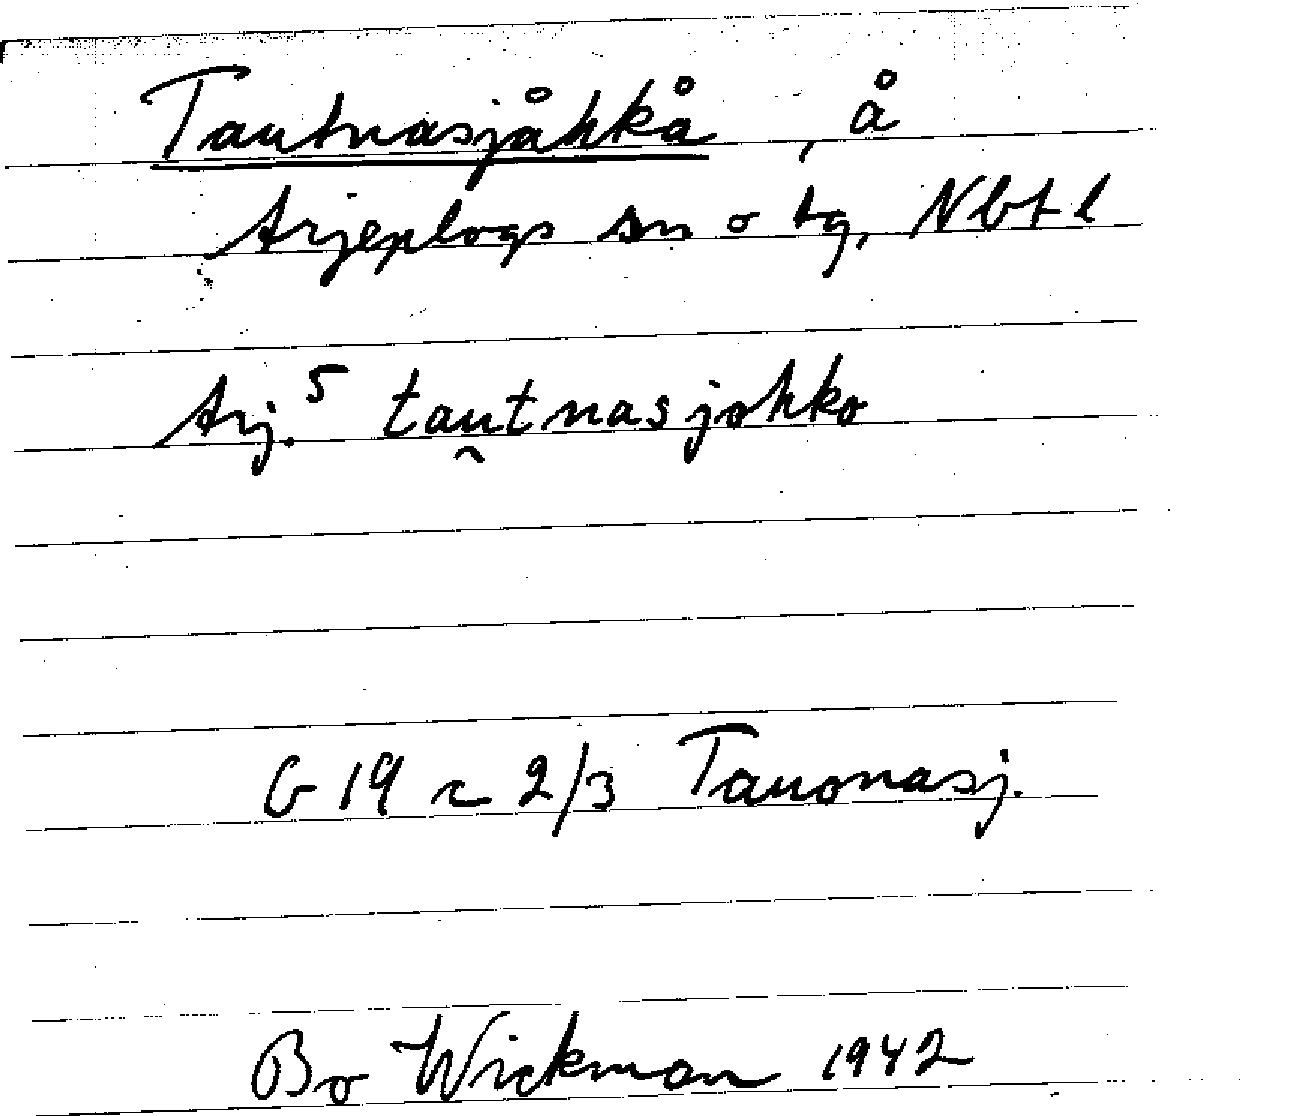 Tautnasjåhkå, å
Arjeplogs sn o tg, Nbtl
Arj.⁵ tau̯tnasjohko
G 19 c 2/3 Tauonasj.
Bo Wickman 1942